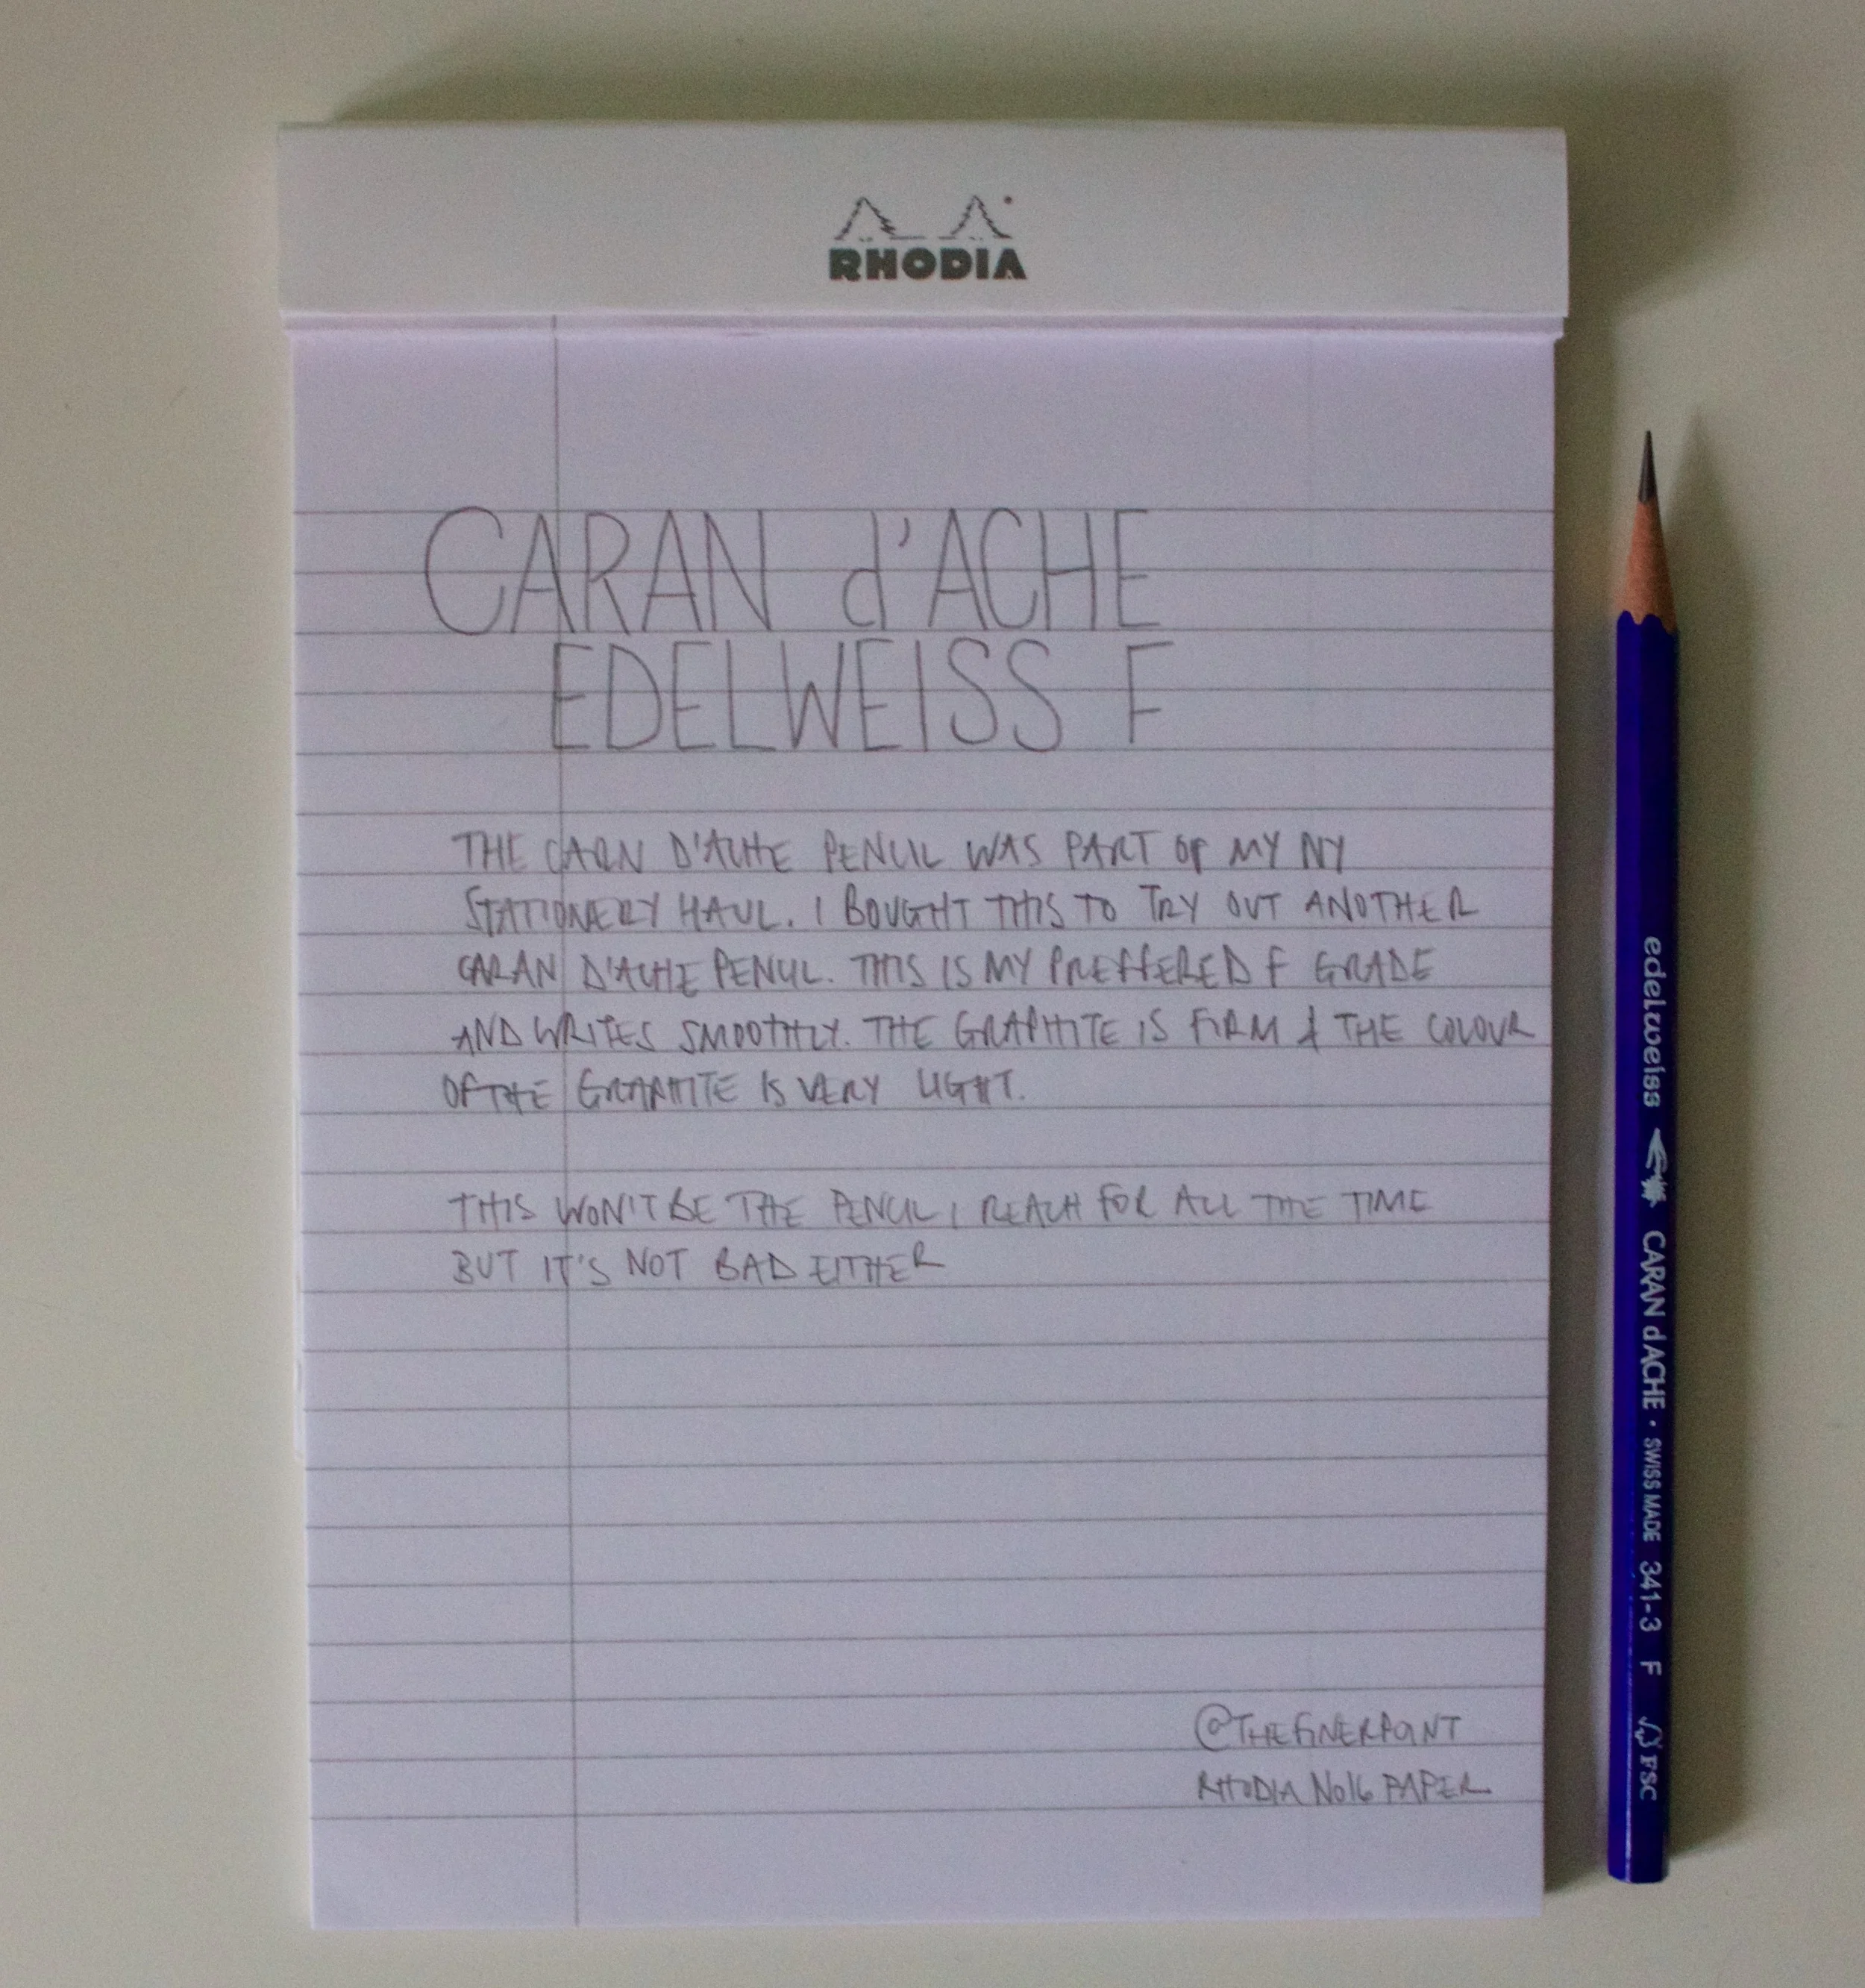 RHODIA
CARAN d'ACHE
EDELWEISS F
THE CARN D'ACHE PENCIL WAS PART OF MY NY
STATIONERY HAUL. I BOUGHT THIS TO TRY OUT ANOTHER
CARAN D'ACHE PENCIL. THIS IS MY PREFFERED F GRADE
AND WRITES SMOOTHLY. THE GRAPHITE IS FIRM & THE COLOUR
OF THE GRAPHITE IS VERY LIGHT.
THIS WON'T BE THE PENCIL I REACH FOR ALL THE TIME
BUT IT'S NOT BAD EITHER
@THEFINERPOINT
RHODIA No16 PAPER
edelweiss CARAN d'ACHE • SWISS MADE 341-3 F FSC